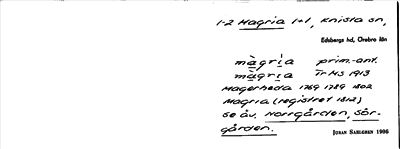 1-2 Magria 1+1, Knista sn,
Edsbergs hd, Örebro län
màgrịa prim.-ant.
màgrịa TrHS 1913
Magerheda 1769 1789 1802
Magria (registret 1812)
se äv. Norrgården, Sör-
gården.
JOHAN SAHLGREN 1906